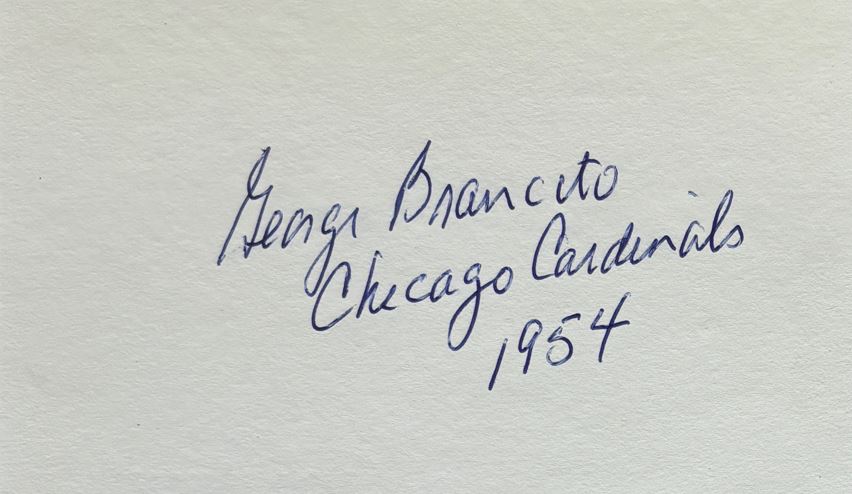 George Brancato
Chicago Cardinals
1954